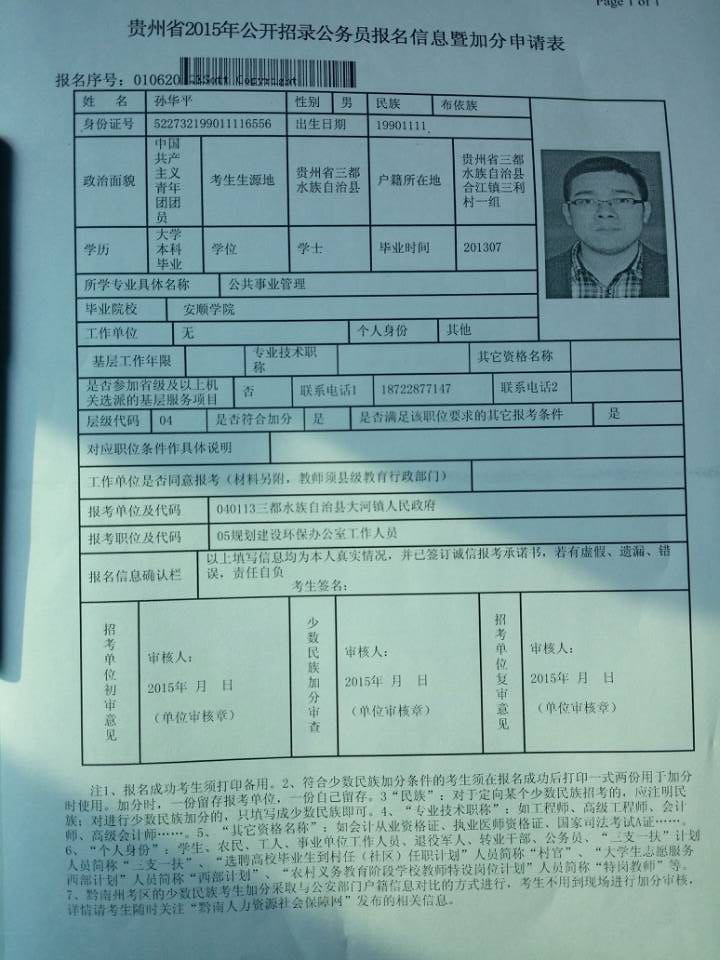 Page 1 of 1
贵州省2015年公开招录公务员报名信息暨加分申请表
报名序号: 010620
姓 名 孙华平 性别 男 民族 布依族
身份证号 522732199011116556 出生日期 19901111
政治面貌 中国共产主义青年团团员 考生生源地 贵州省三都水族自治县 户籍所在地 贵州省三都水族自治县合江镇三利村一组
学历 大学本科毕业 学位 学士 毕业时间 201307
所学专业具体名称 公共事业管理
毕业院校 安顺学院
工作单位 无 个人身份 其他
基层工作年限 专业技术职称 其它资格名称
是否参加省级及以上机关选派的基层服务项目 否 联系电话1 18722877147 联系电话2
层级代码 04 是否符合加分 是 是否满足该职位要求的其它报考条件 是
对应职位条件作具体说明
工作单位是否同意报考（材料另附，教师须县级教育行政部门）
报考单位及代码 040113三都水族自治县大河镇人民政府
报考职位及代码 05规划建设环保办公室工作人员
报名信息确认栏 以上填写信息均为本人真实情况，并已签订诚信报考承诺书，若有虚假、遗漏、错误，责任自负
考生签名:
招考单位初审意见 审核人: 2015年 月 日 （单位审核章）
少数民族加分审查 审核人: 2015年 月 日 （单位审核章）
招考单位复审意见 审核人: 2015年 月 日 （单位审核章）
注1、报名成功考生须打印备用。2、符合少数民族加分条件的考生须在报名成功后打印一式两份用于加分
时使用。加分时，一份留存报考单位，一份自己留存。3“民族”：对于定向某个少数民族招考的，应注明民
族；对进行少数民族加分的，只填写成少数民族即可。4、“专业技术职称”：如工程师、高级工程师、会计
师、高级会计师……。5、“其它资格名称”：如会计从业资格证、执业医师资格证、国家司法考试A证……。
6、“个人身份”：学生、农民、工人、事业单位工作人员、退役军人、转业干部、公务员、“三支一扶”计划
人员简称“三支一扶”、“选聘高校毕业生到村任（社区）任职计划”人员简称“村官”、“大学生志愿服务
西部计划”人员简称“西部计划”、“农村义务教育阶段学校教师特设岗位计划”人员简称“特岗教师”等。
7、黔南州考区的少数民族考生加分采取与公安部门户籍信息对比的方式进行，考生不用到现场进行加分审核，
详情请考生随时关注“黔南人力资源社会保障网”发布的相关信息。